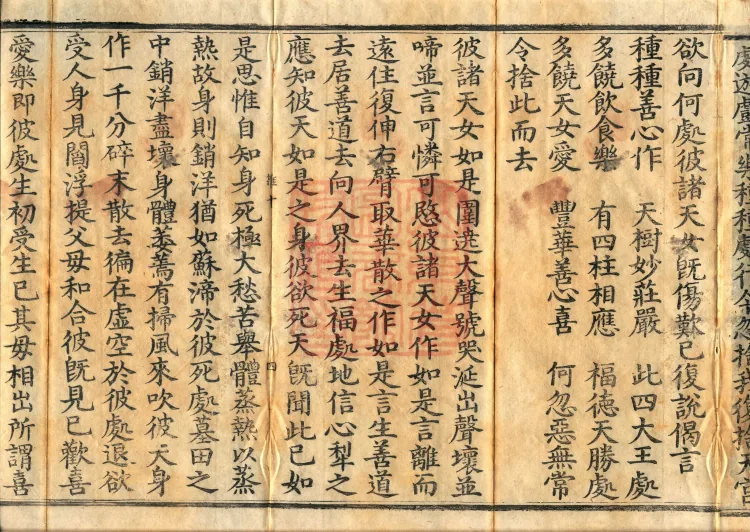 處遊戲常樂種種處
欲向何處彼諸天女既傷歎已復說偈言
種種善心作　天樹妙莊嚴　此四大王處
多饒飲食樂　有四柱相應　福德天勝處
多饒天女愛　豐華善心喜　何忽惡無常
令捨此而去
彼諸天女如是圍遶大聲號哭涎出聲壞並
啼並言可憐可愍彼諸天女作如是言離而
遠住復伸右臂取華散之作如是言生善道
去居善道去向人界去生福處地信心犁之
應知彼天如是之身彼欲死天既聞此已如
推十　四
是思惟自知身死極大愁苦舉體蒸熱以蒸
熱故身則銷洋猶如蘇渧於彼死處墓田之
中銷洋盡壞身體萎蔫有掃風來吹彼天身
作一千分碎末散去徧在虛空於彼處退欲
受人身見閻浮提父母和合彼既見已歡喜
愛樂即彼處生初受生已其母相出所謂喜